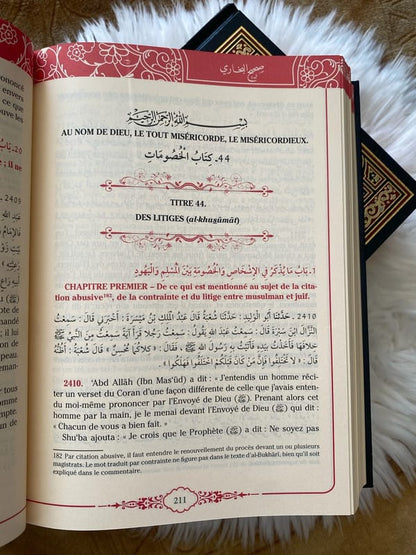 صحيح البخاري
بسم الله الرحمن الرحيم
AU NOM DE DIEU, LE TOUT MISÉRICORDE, LE MISÉRICORDIEUX.
44. كِتَابُ الْخُصُومَاتِ
TITRE 44.
DES LITIGES (al-khuṣûmât)
1. بَابُ مَا يُذْكَرُ فِي الْإِشْخَاصِ وَالْخُصُومَةِ بَيْنَ الْمُسْلِمِ وَالْيَهُودِ
CHAPITRE PREMIER – De ce qui est mentionné au sujet de la cita-
tion abusive182, de la contrainte et du litige entre musulman et juif.
2410. حَدَّثَنَا أَبُو الْوَلِيدِ: حَدَّثَنَا شُعْبَةُ قَالَ عَبْدُ الْمَلِكِ بْنُ مَيْسَرَةَ: أَخْبَرَنِي قَالَ: سَمِعْتُ
النَّزَّالَ بْنَ سَبْرَةَ قَالَ: سَمِعْتُ عَبْدَ اللهِ يَقُولُ: سَمِعْتُ رَجُلًا قَرَأَ آيَةً سَمِعْتُ مِنَ النَّبِيِّ ﷺ
خِلَافَهَا فَأَخَذْتُ بِيَدِهِ فَأَتَيْتُ بِهِ رَسُولَ اللهِ ﷺ فَقَالَ: « كِلَاكُمَا مُحْسِنٌ » قَالَ شُعْبَةُ: أَظُنُّهُ
قَالَ: « لَا تَخْتَلِفُوا فَإِنَّ مَنْ كَانَ قَبْلَكُمُ اخْتَلَفُوا فَهَلَكُوا ».
2410. ‘Abd Allâh (Ibn Mas‘ûd) a dit : « J'entendis un homme réci-
ter un verset du Coran d'une façon différente de celle que j'avais enten-
du moi-même prononcer par l'Envoyé de Dieu (ﷺ) Prenant alors cet
homme par la main, je le menai devant l'Envoyé de Dieu (ﷺ) qui dit :
« Chacun de vous a bien fait. »
Shu'ba ajouta : « Je crois que le Prophète (ﷺ) a dit : Ne soyez pas
182 Par citation abusive, il faut entendre le renouvellement du procès devant un ou plusieurs
magistrats. Le mot traduit par contrainte ne figure pas dans le texte d'al-Bukhârî, bien qu'il soit
expliqué dans le commentaire.
211